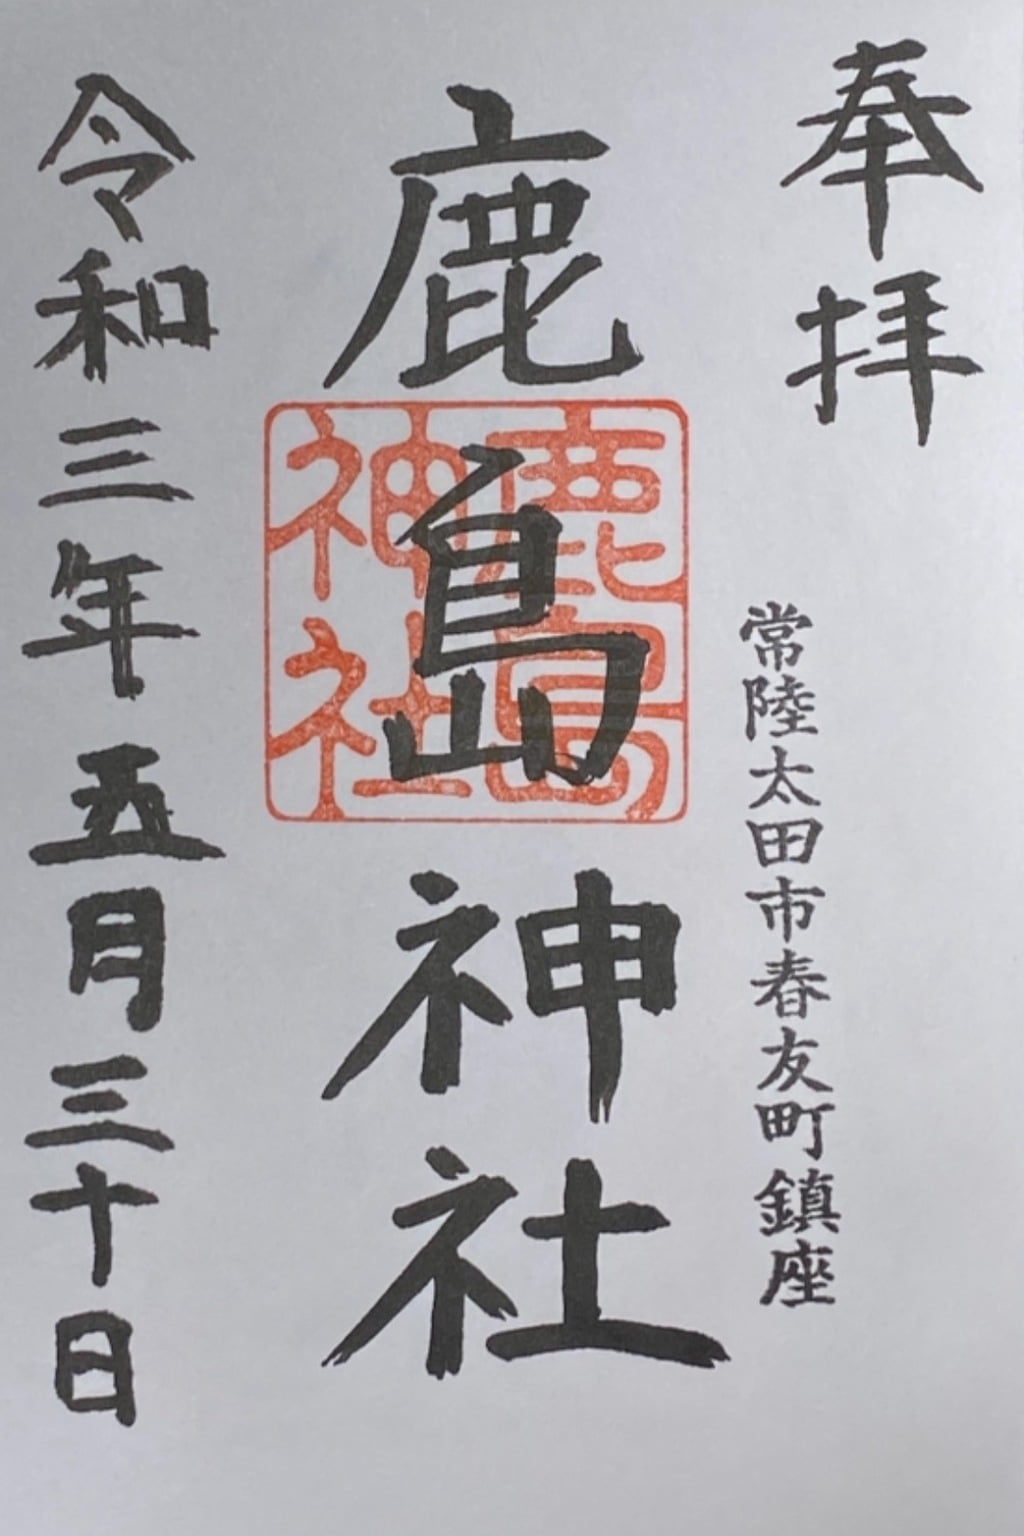 奉拝
常陸太田市春友町鎮座
鹿島神社
鹿島
神社
令和三年五月三十日